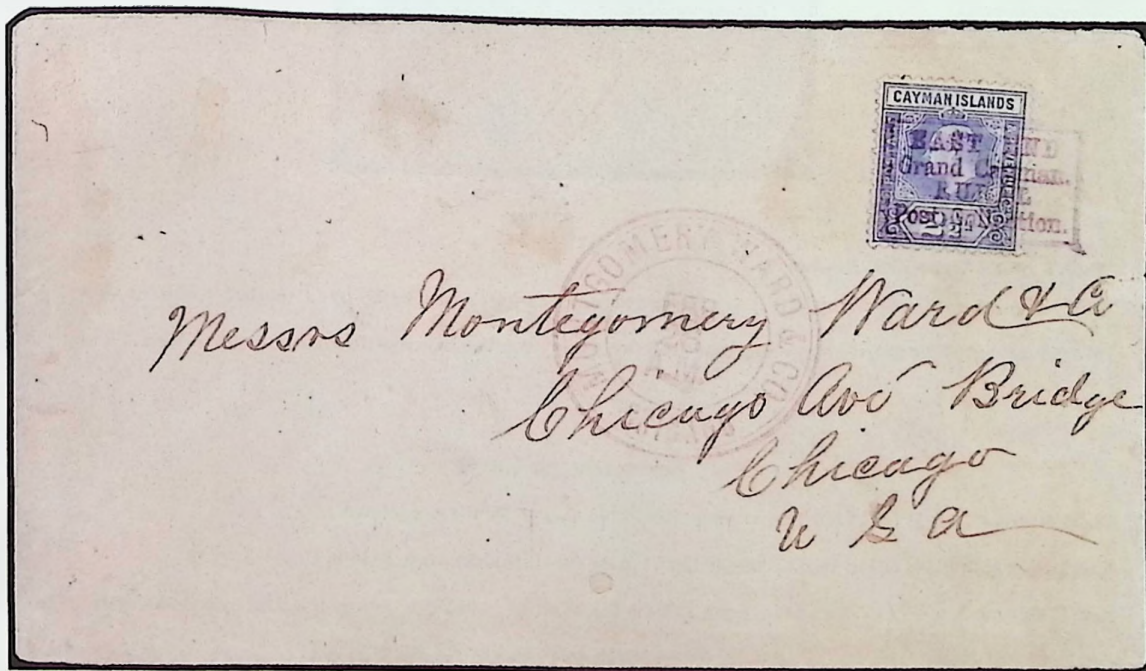 CAYMAN ISLANDS
EAST END
Grand Cayman.
RURAL
Post
tion.
2½d
MONTGOMERY WARD & CO
FEB
Messrs Montegomery Ward & Co
Chicago Ave Bridge
Chicago
U S A